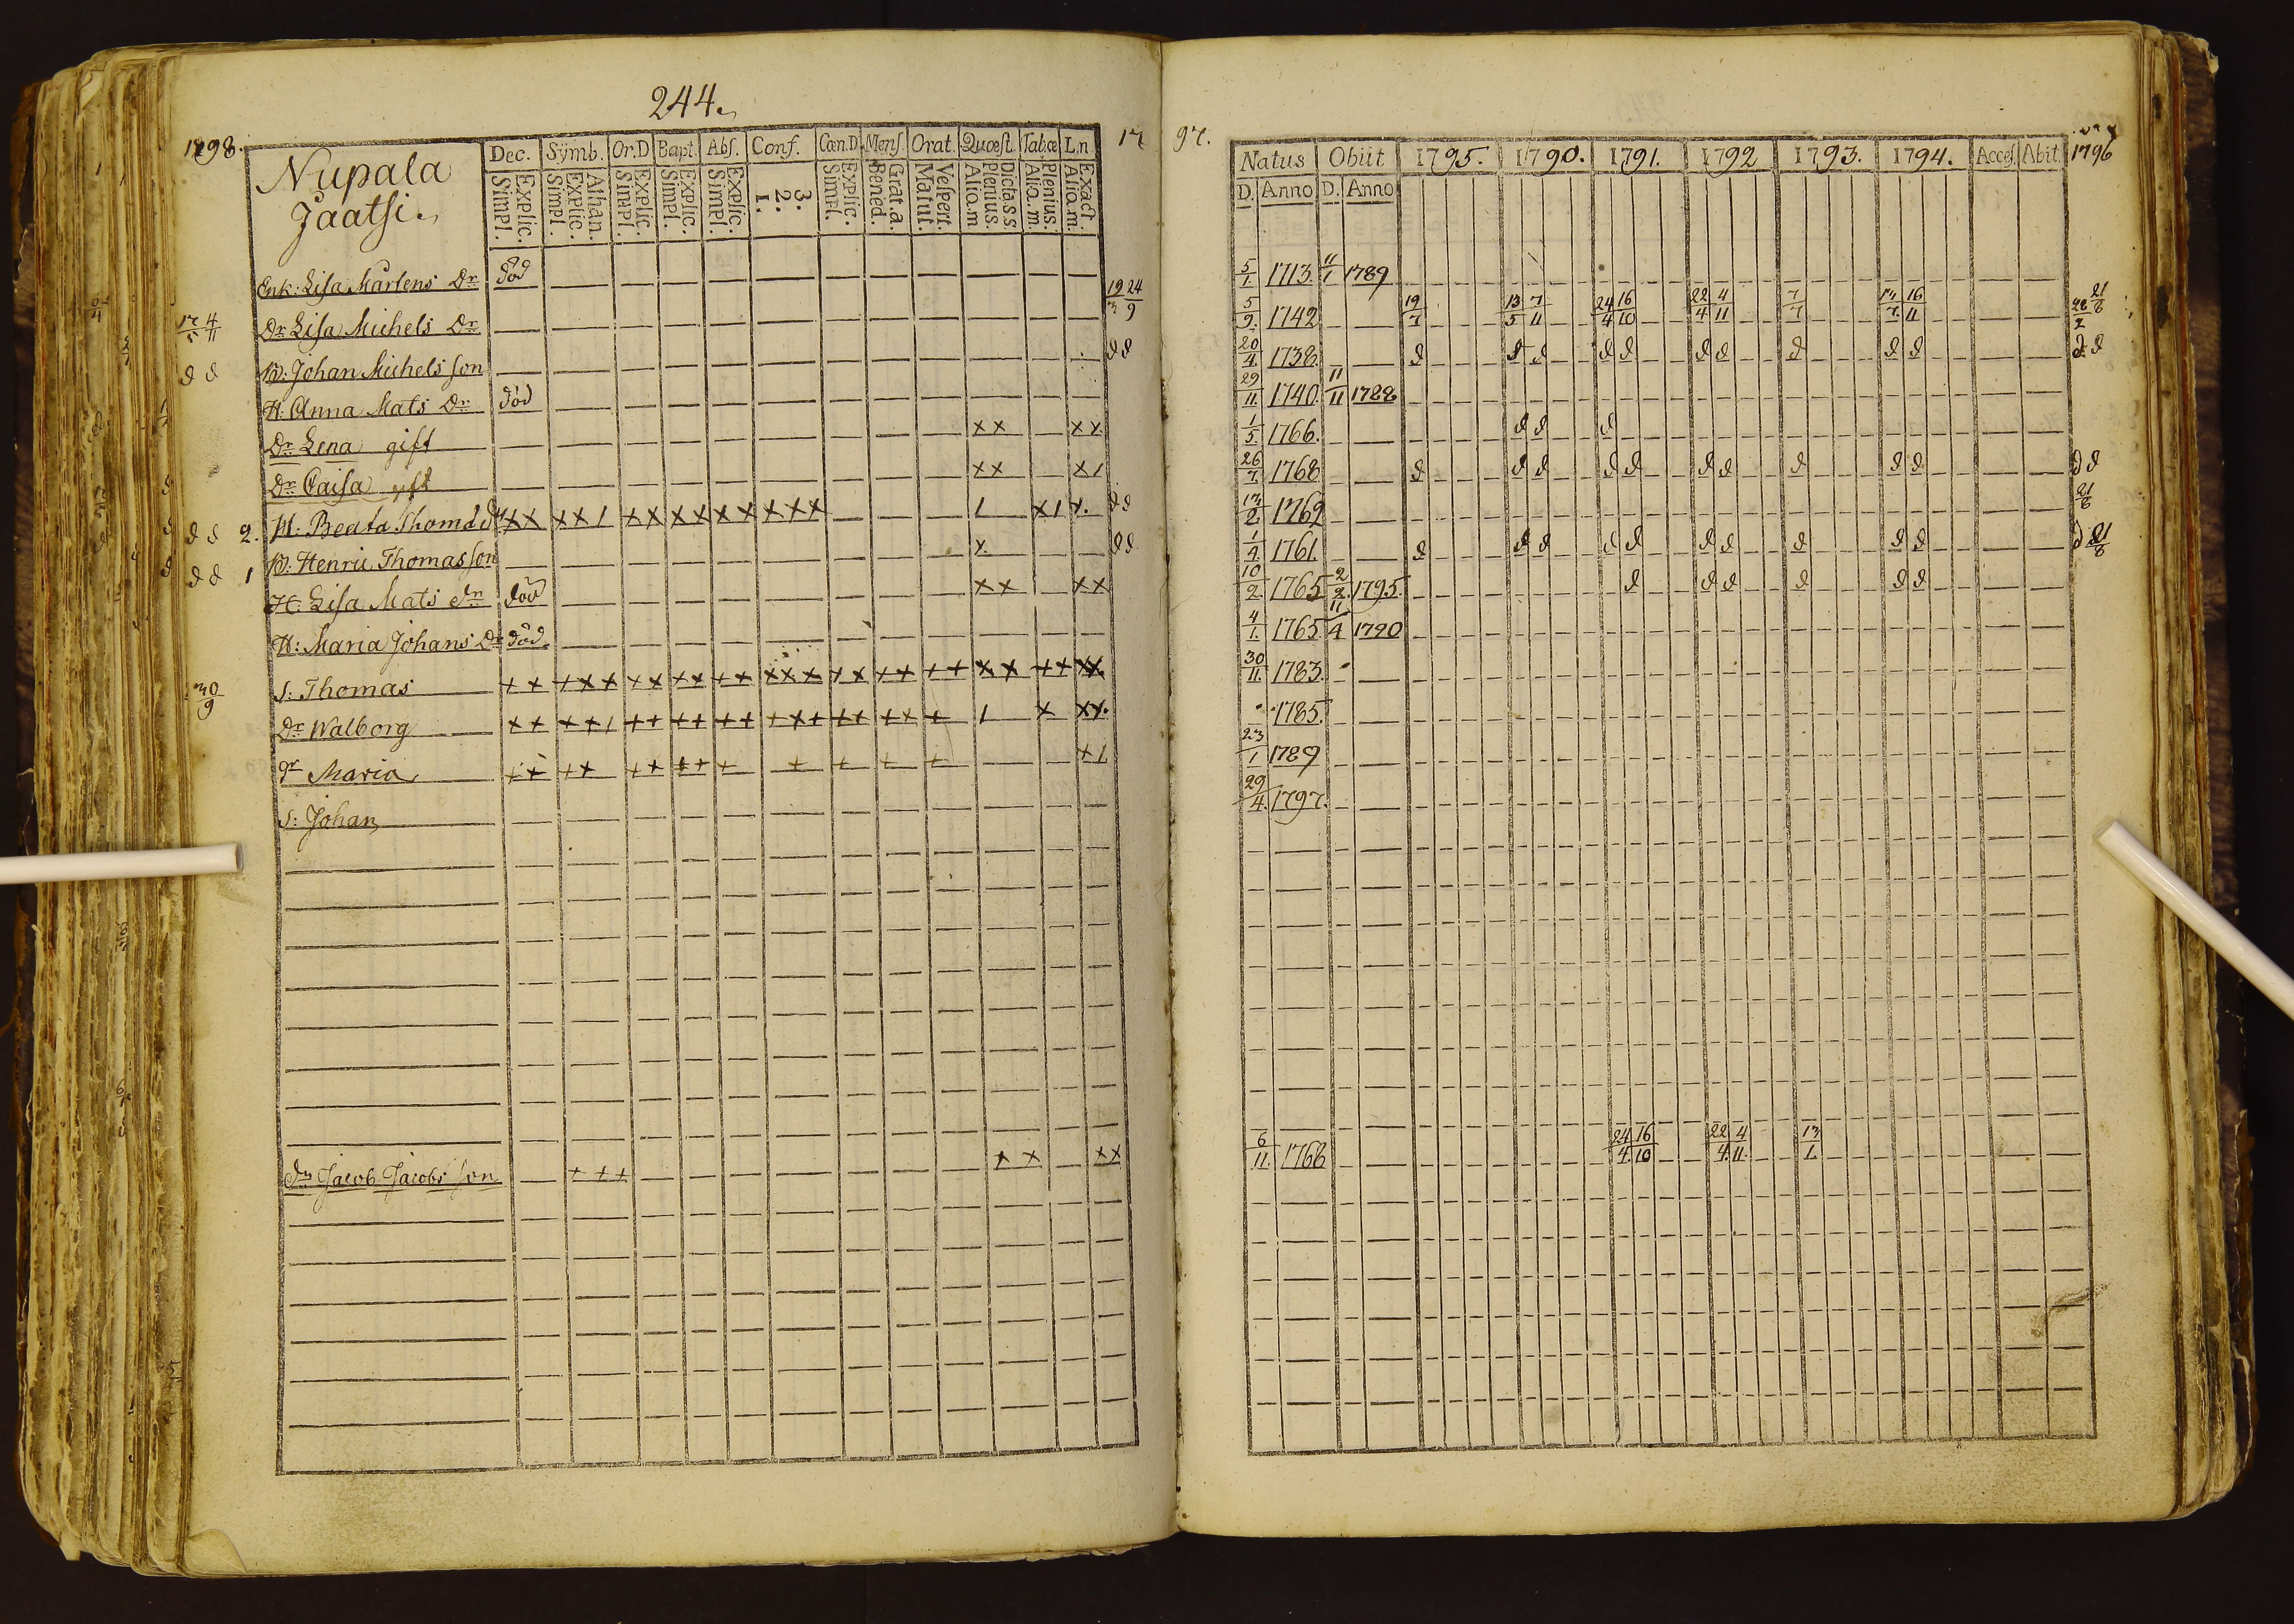 244.
1798.
Nupala
Jaatsi.
Dec. Symb. Or.D Bapt. Abs. Conf. Cœn.D Mens. Orat. Quœst. Tab.œ L.n.
Explic. Simpl. Athan. Explic. Simpl. Explic. Simpl. Explic. Simpl. Explic. Simpl. 3. 2. 1. Explic. Simpl. Grat.a. Bened. Vespert. Matut. Dicta S.S. Plenius. Aliq.m Plenius. Aliq.m. Exact. Aliq.m.
Enk: Lisa Mårtens Dr död
17/5 4/11 Dr Lisa Michels Dr 19/3 24/9
d d B: Johan Michels son d d
H: Anna Mats Dr död
Dr Lena gift x x x x
Dr Caisa gift x x x 1
d d 2. M: Beata Thomæ dr x x x x 1 x x x x x x x x x 1 x 1 x. d d
d d 1 B: Henric Thomasson x. d d
H: Lisa Mats dr död x x x x
H: Maria Johans Dr död.
30/9 S: Thomas x x x x x x x x x x x x x x x x x x x x x x x x x x
Dr Walborg x x x x 1 x x x x x x x x x x x x x x 1 x x x.
Dr Maria x x x x x x x x x x x x x x 1
S: Johan
dn Jacob Jacobs son x x x x x x x
17 97.
Natus Obiit 1795. 1790. 1791. 1792 1793. 1794. Acces. Abit. 1796
D. Anno D. Anno
5/1. 1713. 11/1 1789
5/9. 1742 19/7 13/5 7/11 24/4 16/10 22/4 4/11 7/7 13/7. 16/11 28/2 21/8
20/4. 1738. d d d d d d d d d d d d
29/11. 1740. 11/11 1788
1/5. 1766. d d d
26/7. 1768 d d d d d d d d d d d d
13/2. 1769 21/8
1/4 1761. d d d d d d d d d d d 21/8
10/2. 1765 2/2. 1795. d d d d d d
4/1. 1765 11/4 1790
30/11. 1783.
1785.
23/1 1789
29/4. 1797.
6/11. 1766 24/4. 16/10 22/4. 4/11. 13/1.